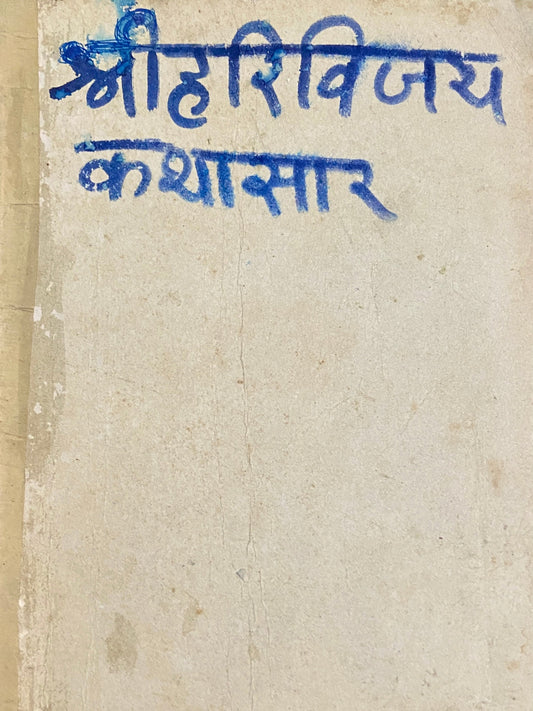 श्रीहरिविजय
कथासार